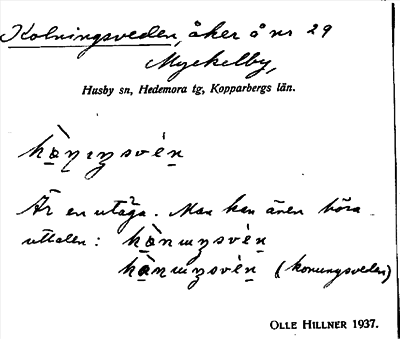 Kolningsveden, åker å nr 29
Myckelby,
Husby sn, Hedemora tg, Kopparbergs län.
Är en utäga. Man kan även höra
uttalen:
(konungsveden)
OLLE HILLNER 1937.